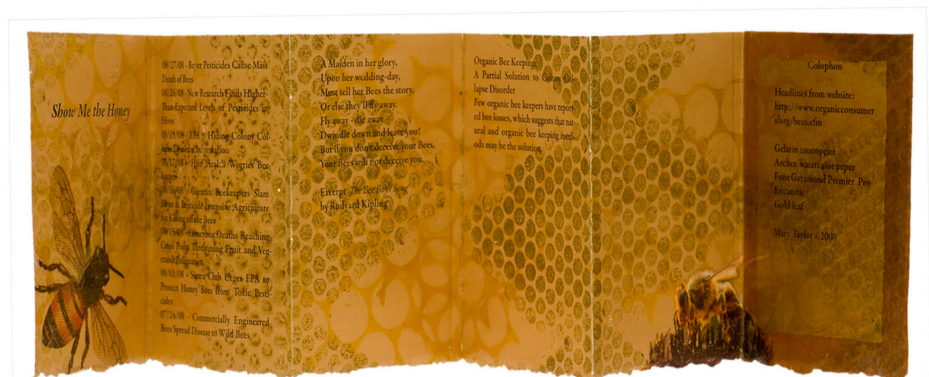 Show Me the Honey
08/27/08 - Bayer Pesticides Cause Mass
Death of Bees
08/26/08 - New Research Finds Higher-
Than-Expected Levels of Pesticides in
Hives
EPA Hiding Colony Col-
lapse Disorder Information
Worries Bee-
Beekeepers Slam
Pesticide-Intensive Agriculture
for Killing Bees
Honeybee Deaths Reaching
Crisis Point Threatening Fruit and Veg-
08/01/08 - Sierra Club Urges EPA to
Protect Honey Bees from Toxic Pesti-
cides
07/24/08 - Commercially Engineered
Bees Spread Disease to Wild Bees
A Maiden in her glory,
Upon her wedding-day,
Must tell her Bees the story,
Or else they'll fly away.
Fly away - die away -
Dwindle down and leave you!
But if you don't deceive your Bees,
Your Bees will not deceive you.
Excerpt The Bee Boy's Song
by Rudyard Kipling
Organic Bee Keeping:
A Partial Solution to Colony Col-
lapse Disorder
Few organic bee keepers have report-
ed bee losses, which suggests that nat-
ural and organic bee keeping meth-
ods may be the solution.
Colophon
Headlines from website:
http://www.organicconsumer
s.org/bees.cfm
Gelatin monoprint
Arches watercolor paper
Font Garamond Premier Pro
Encaustic
Gold leaf
Mary Taylor ©2008